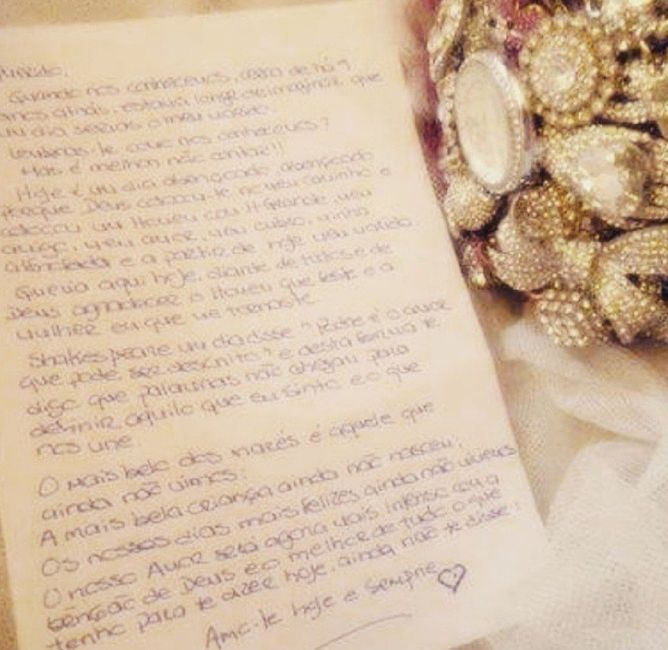 Quando nós conhecemos, cerca de há 9
anos atrás, estava longe de imaginar que
um dia serias o meu marido.
Lembras-te como nos conhecemos?
Mas é melhor não contar!!
Hoje é um dia abençoado, abençoado
Porque Deus colocou-te no meu caminho e
colocou um Homem com H Grande, meu
amigo, meu amor, meu
e a partir de hoje meu marido.
Queria aqui hoje, diante de todos e de
Deus agradecer o Homem que este e a
mulher em que me tornaste.
Shakespeare um dia disse "Pobre é o amor
que pode ser descrito" e desta forma te
digo que palavras não chegam para
definir aquilo que eu sinto e o que
nos une.
O mais belo dos mares é aquele que
ainda não vimos;
A mais bela criança ainda não nasceu;
Os nossos dias mais felizes ainda não vivemos
O nosso Amor será agora mais intenso com a
benção de Deus e o melhor de tudo o que
tenho para te dizer hoje, ainda não te disse!
Amo-te hoje e sempre